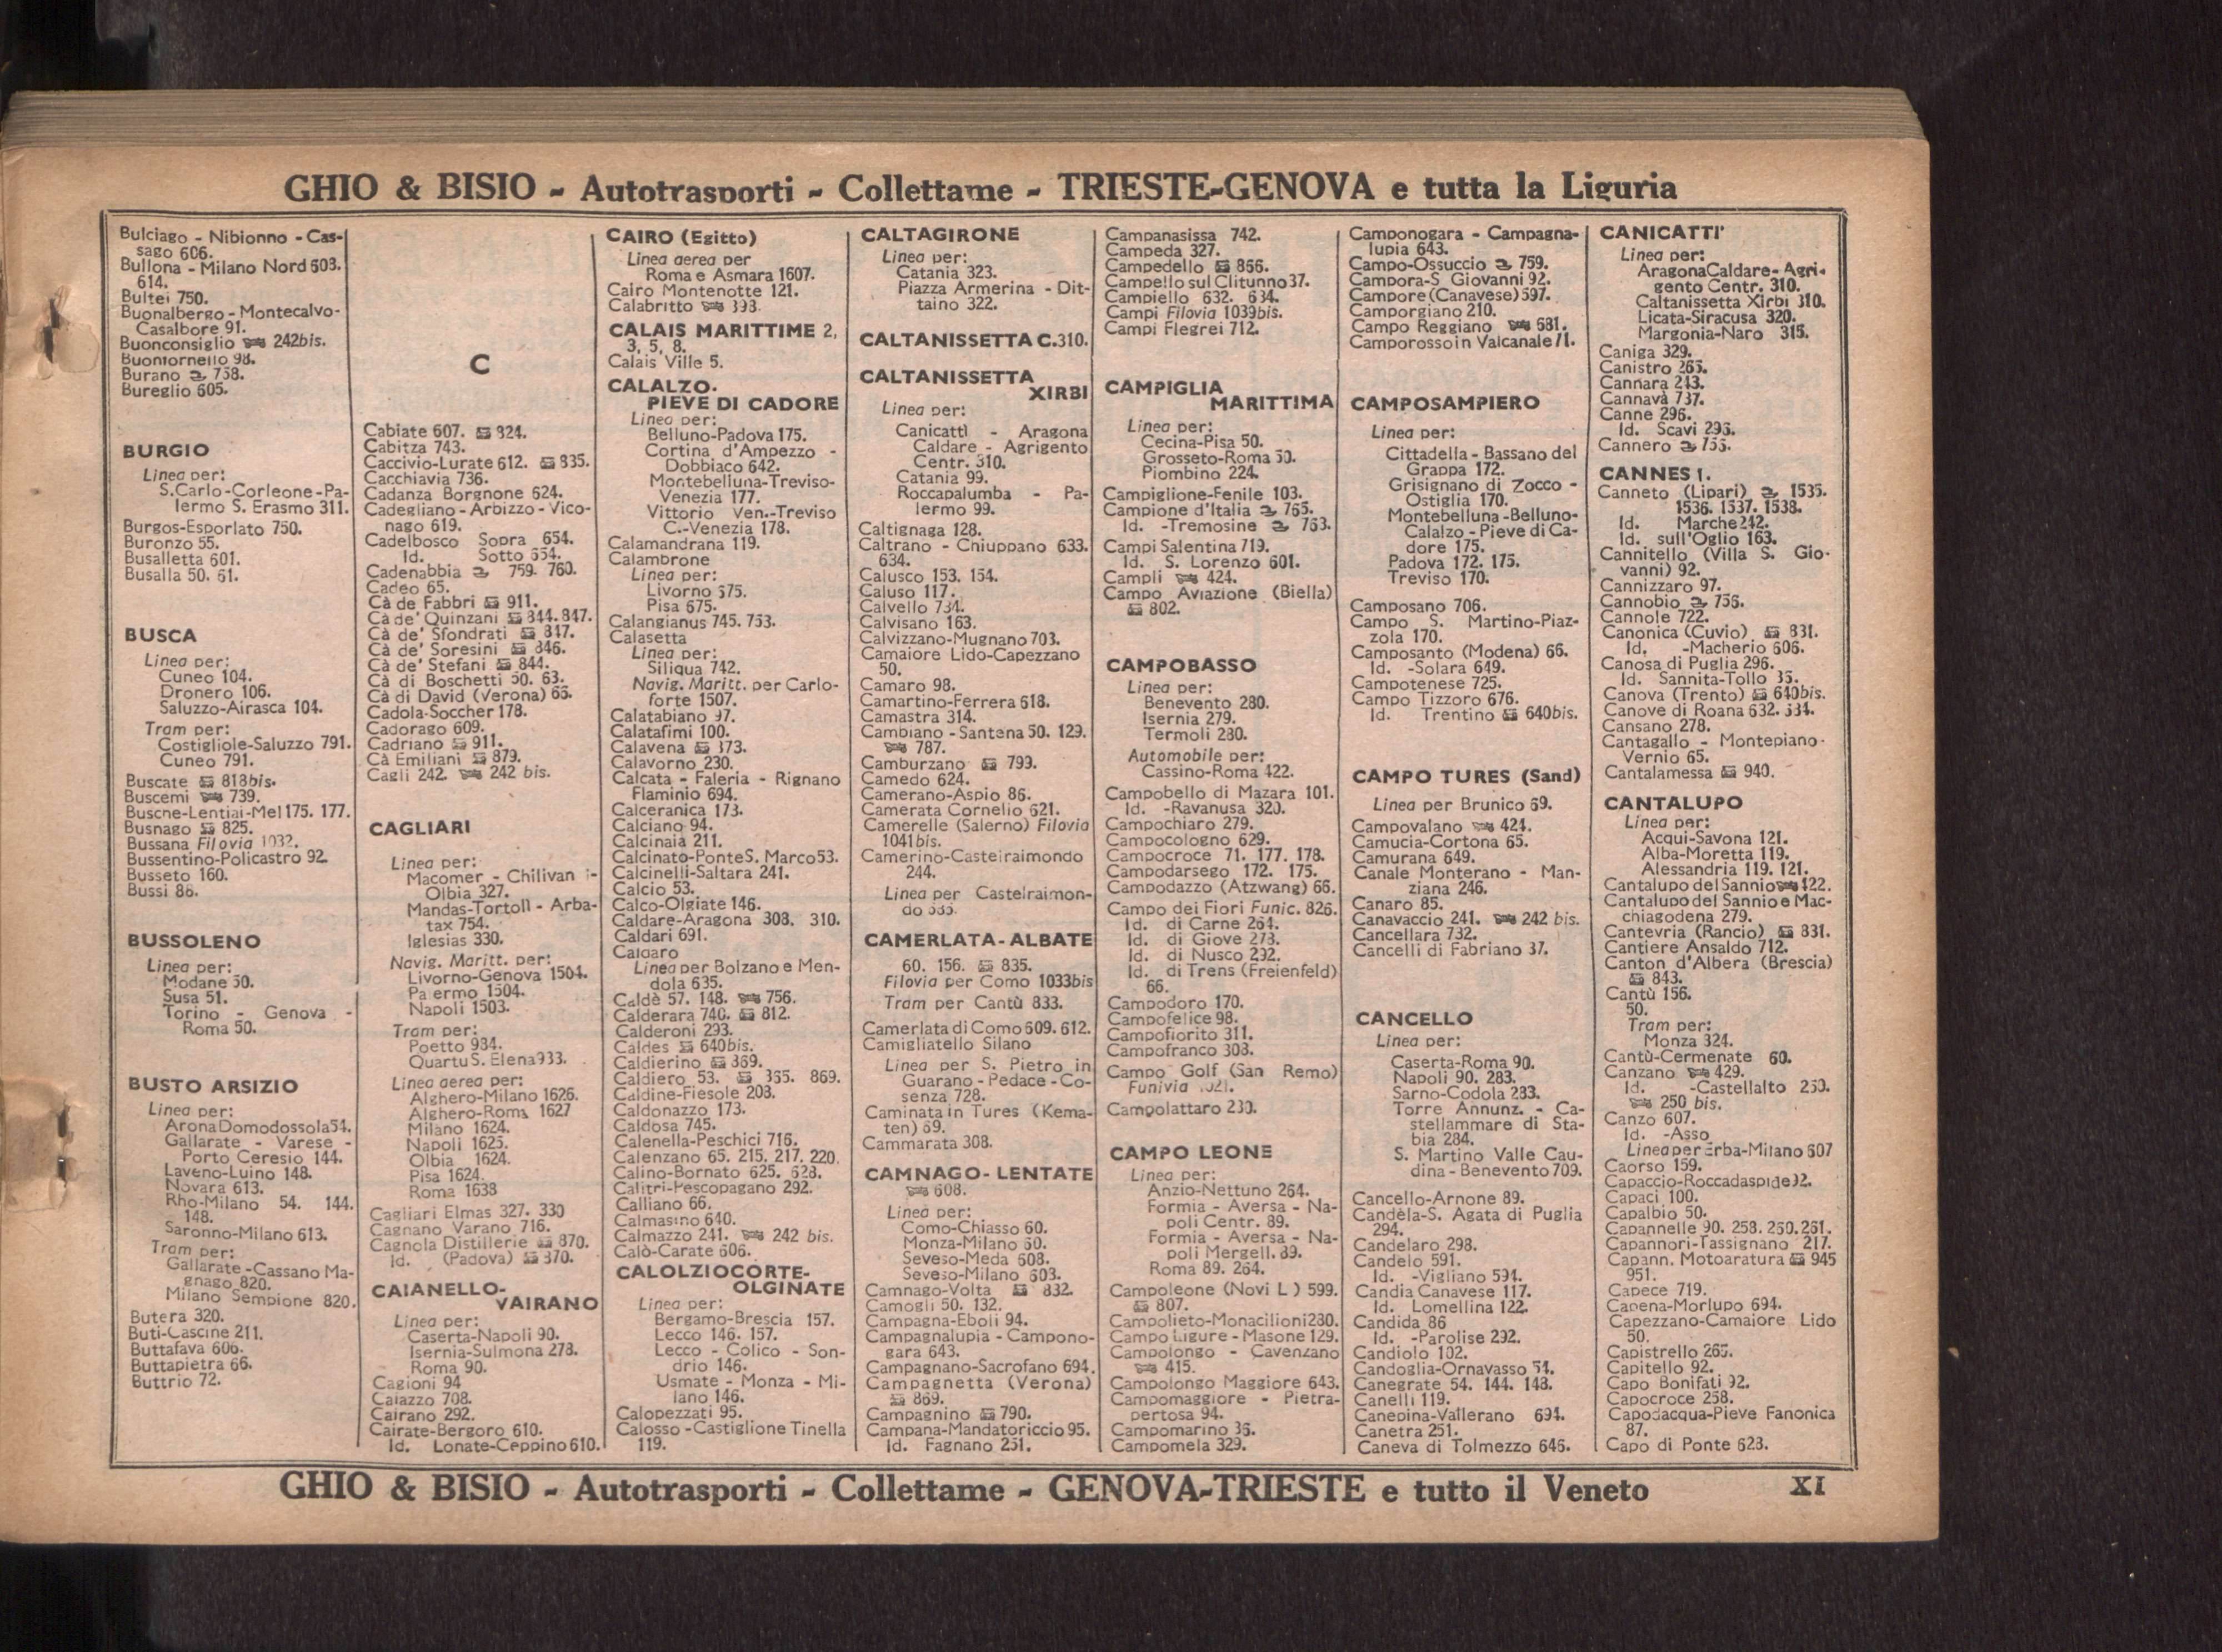 GHIO & BISIO - Autotrasporti - Collettame - TRIESTE-GENOVA e tutta la Liguria
Bulciago - Nibionno - Cas-
sago 606.
Bullona - Milano Nord 603.
614.
Bultei 750.
Buonalbergo - Montecalvo-
Casalbore 91.
Buonconsiglio 242bis.
Buonfornello 98.
Burano 758.
Bureglio 605.
BURGIO
Linea per:
S.Carlo-Corleone-Pa-
lermo S. Erasmo 311.
Burgos-Esporlato 750.
Buronzo 55.
Busalletta 601.
Busalla 50. 61.
BUSCA
Linea per:
Cuneo 104.
Dronero 106.
Saluzzo-Airasca 104.
Tram per:
Costigliole-Saluzzo 791.
Cuneo 791.
Buscate 818bis.
Buscemi 739.
Busche-Lentiai-Mel 175. 177.
Busnago 825.
Bussana Filovia 1032.
Bussentino-Policastro 92.
Busseto 160.
Bussi 86.
BUSSOLENO
Linea per:
Modane 50.
Susa 51.
Torino - Genova -
Roma 50.
BUSTO ARSIZIO
Linea per:
Arona Domodossola 54.
Gallarate - Varese -
Porto Ceresio 144.
Laveno-Luino 148.
Novara 613.
Rho-Milano 54. 144.
148.
Saronno-Milano 613.
Tram per:
Gallarate-Cassano Ma-
gnago 820.
Milano Sempione 820.
Butera 320.
Buti-Cascine 211.
Buttafava 606.
Buttapietra 66.
Buttrio 72.
C
Cabiate 607. 824.
Cabitza 743.
Caccivio-Lurate 612. 835.
Cacchiavia 736.
Cadanza Borgnone 624.
Cadegliano - Arbizzo - Vico-
nago 619.
Cadelbosco Sopra 654.
Id. Sotto 654.
Cadenabbia 759. 760.
Cadeo 65.
Cà de Fabbri 911.
Cà de' Quinzani 844. 847.
Cà de' Sfondrati 847.
Cà de' Soresini 846.
Cà de' Stefani 844.
Cà di Boschetti 50. 63.
Cà di David (Verona) 66.
Cadola-Soccher 178.
Cadorago 609.
Cadriano 911.
Cà Emiliani 879.
Cagli 242. 242 bis.
CAGLIARI
Linea per:
Macomer - Chilivan i-
Olbia 327.
Mandas-Tortolì - Arba-
tax 754.
Iglesias 330.
Navig. Maritt. per:
Livorno-Genova 1504.
Pa ermo 1504.
Napoli 1503.
Tram per:
Poetto 934.
Quartu S. Elena 933.
Linea aerea per:
Alghero-Milano 1626.
Alghero-Roma 1627
Milano 1624.
Napoli 1625.
Olbia 1624.
Pisa 1624.
Roma 1638
Cagliari Elmas 327. 330
Cagnano Varano 716.
Cagnola Distillerie 870.
Id. (Padova) 870.
CAIANELLO-
VAIRANO
Linea per:
Caserta-Napoli 90.
Isernia-Sulmona 278.
Roma 90.
Cagioni 94
Caiazzo 708.
Cairano 292.
Cairate-Bergoro 610.
Id. Lonate-Ceppino 610.
CAIRO (Egitto)
Linea aerea per
Roma e Asmara 1607.
Cairo Montenotte 121.
Calabritto 393.
CALAIS MARITTIME 2,
3, 5, 8.
Calais Ville 5.
CALALZO-
PIEVE DI CADORE
Linea per:
Belluno-Padova 175.
Cortina d'Ampezzo -
Dobbiaco 642.
Montebelluna-Treviso-
Venezia 177.
Vittorio Ven.-Treviso
C.-Venezia 178.
Calamandrana 119.
Calambrone
Linea per:
Livorno 675.
Pisa 675.
Calangianus 745. 753.
Calasetta
Linea per:
Siliqua 742.
Navig. Maritt. per Carlo-
forte 1507.
Calatabiano 97.
Calatafimi 100.
Calavena 873.
Calavorno 230.
Calcata - Faleria - Rignano
Flaminio 694.
Calceranica 173.
Calciano 94.
Calcinaia 211.
Calcinato-Ponte S. Marco 53.
Calcinelli-Saltara 241.
Calcio 53.
Calco-Olgiate 146.
Caldare-Aragona 308. 310.
Caldari 691.
Caldaro
Linea per Bolzano e Men-
dola 635.
Caldè 57. 148. 756.
Calderara 740. 812.
Calderoni 293.
Caldes 640bis.
Caldierino 869.
Caldiero 53. 865. 869.
Caldine-Fiesole 208.
Caldonazzo 173.
Caldosa 745.
Calenella-Peschici 716.
Calenzano 65. 215. 217. 220.
Calino-Bornato 625. 628.
Calitri-Pescopagano 292.
Calliano 66.
Calmasino 640.
Calmazzo 241. 242 bis.
Calò-Carate 606.
CALOLZIOCORTE-
OLGINATE
Linea per:
Bergamo-Brescia 157.
Lecco 146. 157.
Lecco - Colico - Son-
drio 146.
Usmate - Monza - Mi-
lano 146.
Calopezzati 95.
Calosso-Castiglione Tinella
119.
CALTAGIRONE
Linea per:
Catania 323.
Piazza Armerina - Dit-
taino 322.
CALTANISSETTA C. 310.
CALTANISSETTA
XIRBI
Linea per:
Canicattì - Aragona
Caldare - Agrigento
Centr. 310.
Catania 99.
Roccapalumba - Pa-
lermo 99.
Caltignaga 128.
Caltrano - Chiuppano 633.
634.
Calusco 153. 154.
Caluso 117.
Calvello 734.
Calvisano 163.
Calvizzano-Mugnano 703.
Camaiore Lido-Capezzano
50.
Camaro 98.
Camartino-Ferrera 618.
Camastra 314.
Cambiano - Santena 50. 129.
787.
Camburzano 799.
Camedo 624.
Camerano-Aspio 86.
Camerata Cornelio 621.
Camerelle (Salerno) Filovia
1041bis.
Camerino-Castelraimondo
244.
Linea per Castelraimon-
do
CAMERLATA-ALBATE
60. 156. 835.
Filovia per Como 1033bis
Tram per Cantù 833.
Camerlata di Como 609. 612.
Camigliatello Silano
Linea per S. Pietro in
Guarano - Pedace - Co-
senza 728.
Caminata in Tures (Kema-
ten) 69.
Cammarata 308.
CAMNAGO-LENTATE
608.
Linea per:
Como-Chiasso 60.
Monza-Milano 60.
Seveso-Meda 608.
Seveso-Milano 603.
Camnago-Volta 832.
Camogli 50. 132.
Campagna-Eboli 94.
Campagnalupia - Campono-
gara 643.
Campagnano-Sacrofano 694.
Campagnetta (Verona)
869.
Campagnino 790.
Campana-Mandatoriccio 95.
Id. Fagnano 251.
Campanasissa 742.
Campeda 327.
Campedello 866.
Campello sul Clitunno 37.
Campiello 632. 634.
Campi Filovia 1039bis.
Campi Flegrei 712.
CAMPIGLIA
MARITTIMA
Linea per:
Cecina-Pisa 50.
Grosseto-Roma 50.
Piombino 224.
Campiglione-Fenile 103.
Campione d'Italia 765.
Id. -Tremosine 763.
Campi Salentina 719.
Id. S. Lorenzo 601.
Campli 424.
Campo Aviazione (Biella)
802.
CAMPOBASSO
Linea per:
Benevento 280.
Isernia 279.
Termoli 280.
Automobile per:
Cassino-Roma 422.
Campobello di Mazara 101.
Id. -Ravanusa 320.
Campochiaro 279.
Campocologno 629.
Campocroce 71. 177. 178.
Campodarsego 172. 175.
Campodazzo (Atzwang) 66.
Campo dei Fiori Funic. 826.
Id. di Carne 264.
Id. di Giove 273.
Id. di Nusco 292.
Id. di Trens (Freienfeld)
66.
Campodoro 170.
Campofelice 98.
Campofiorito 311.
Campofranco 308.
Campo Golf (San Remo)
Funivia
Campolattaro 280.
CAMPO LEONE
Linea per:
Anzio-Nettuno 264.
Formia - Aversa - Na-
poli Centr. 89.
Formia - Aversa - Na-
poli Mergell. 89.
Roma 89. 264.
Campoleone (Novi L ) 599.
807.
Campolieto-Monacilioni 280.
Campo Ligure - Masone 129.
Campolongo - Cavenzano
415.
Campolongo Maggiore 643.
Campomaggiore - Pietra-
pertosa 94.
Campomarino 36.
Campomela 329.
Camponogara - Campagna-
lupia 643.
Campo-Ossuccio 759.
Campora-S Giovanni 92.
Campore (Canavese) 597.
Camporgiano 210.
Campo Reggiano 681.
Camporosso in Valcanale 71.
CAMPOSAMPIERO
Linea per:
Cittadella - Bassano del
Grappa 172.
Grisignano di Zocco -
Ostiglia 170.
Montebelluna-Belluno-
Calalzo - Pieve di Ca-
dore 175.
Padova 172. 175.
Treviso 170.
Camposano 706.
Campo S. Martino-Piaz-
zola 170.
Camposanto (Modena) 66.
Id. -Solara 649.
Campotenese 725.
Campo Tizzoro 676.
Id. Trentino 640bis.
CAMPO TURES (Sand)
Linea per Brunico 69.
Campovalano 424.
Camucia-Cortona 65.
Camurana 649.
Canale Monterano - Man-
ziana 246.
Canaro 85.
Canavaccio 241. 242 bis.
Cancellara 732.
Cancelli di Fabriano 37.
CANCELLO
Linea per:
Caserta-Roma 90.
Napoli 90. 283.
Sarno-Codola 283.
Torre Annunz. - Ca-
stellammare di Sta-
bia 284.
S. Martino Valle Cau-
dina - Benevento 709.
Cancello-Arnone 89.
Candèla-S. Agata di Puglia
294.
Candelaro 298.
Candelo 591.
Id. -Vigliano 591.
Candia Canavese 117.
Id. Lomellina 122.
Candida 86
Id. -Parolise 292.
Candiolo 102.
Candoglia-Ornavasso 54.
Canegrate 54. 144. 148.
Canelli 119.
Canepina-Vallerano 694.
Canetra 251.
Caneva di Tolmezzo 646.
CANICATTI'
Linea per:
Aragona Caldare-Agri-
gento Centr. 310.
Caltanissetta Xirbi 310.
Licata-Siracusa 320.
Margonia-Naro 315.
Caniga 329.
Canistro 265.
Cannara 243.
Cannavà 737.
Canne 296.
Id. Scavi 296.
Cannero 756.
CANNES 1.
Canneto (Lipari) 1535.
1536. 1537. 1538.
Id. Marche 242.
Id. sull'Oglio 163.
Cannitello (Villa S. Gio-
vanni) 92.
Cannizzaro 97.
Cannobio 756.
Cannole 722.
Canonica (Cuvio) 831.
Id. -Macherio 606.
Canosa di Puglia 296.
Id. Sannita-Tollo 36.
Canova (Trento) 640bis.
Canove di Roana 632. 634.
Cansano 278.
Cantagallo - Montepiano-
Vernio 65.
Cantalamessa 940.
CANTALUPO
Linea per:
Acqui-Savona 121.
Alba-Moretta 119.
Alessandria 119. 121.
Cantalupo del Sannio 422.
Cantalupo del Sannio e Mac-
chiagodena 279.
Cantevria (Rancio) 831.
Cantiere Ansaldo 712.
Canton d'Albera (Brescia)
843.
Cantù 156.
50.
Tram per:
Monza 324.
Cantù-Cermenate 60.
Canzano 429.
Id. -Castellalto 250.
250 bis.
Canzo 607.
Id. -Asso
Linea per Erba-Milano 607
Caorso 159.
Capaccio-Roccadaspide 92.
Capaci 100.
Capalbio 50.
Capannelle 90. 258. 260. 261.
Capannori-Tassignano 217.
Capann. Motoaratura 945
951.
Capece 719.
Capena-Morlupo 694.
Capezzano-Camaiore Lido
50.
Capistrello 265.
Capitello 92.
Capo Bonifati 92.
Capocroce 258.
Capodacqua-Pieve Fanonica
87.
Capo di Ponte 628.
GHIO & BISIO - Autotrasporti - Collettame - GENOVA-TRIESTE e tutto il Veneto
XI